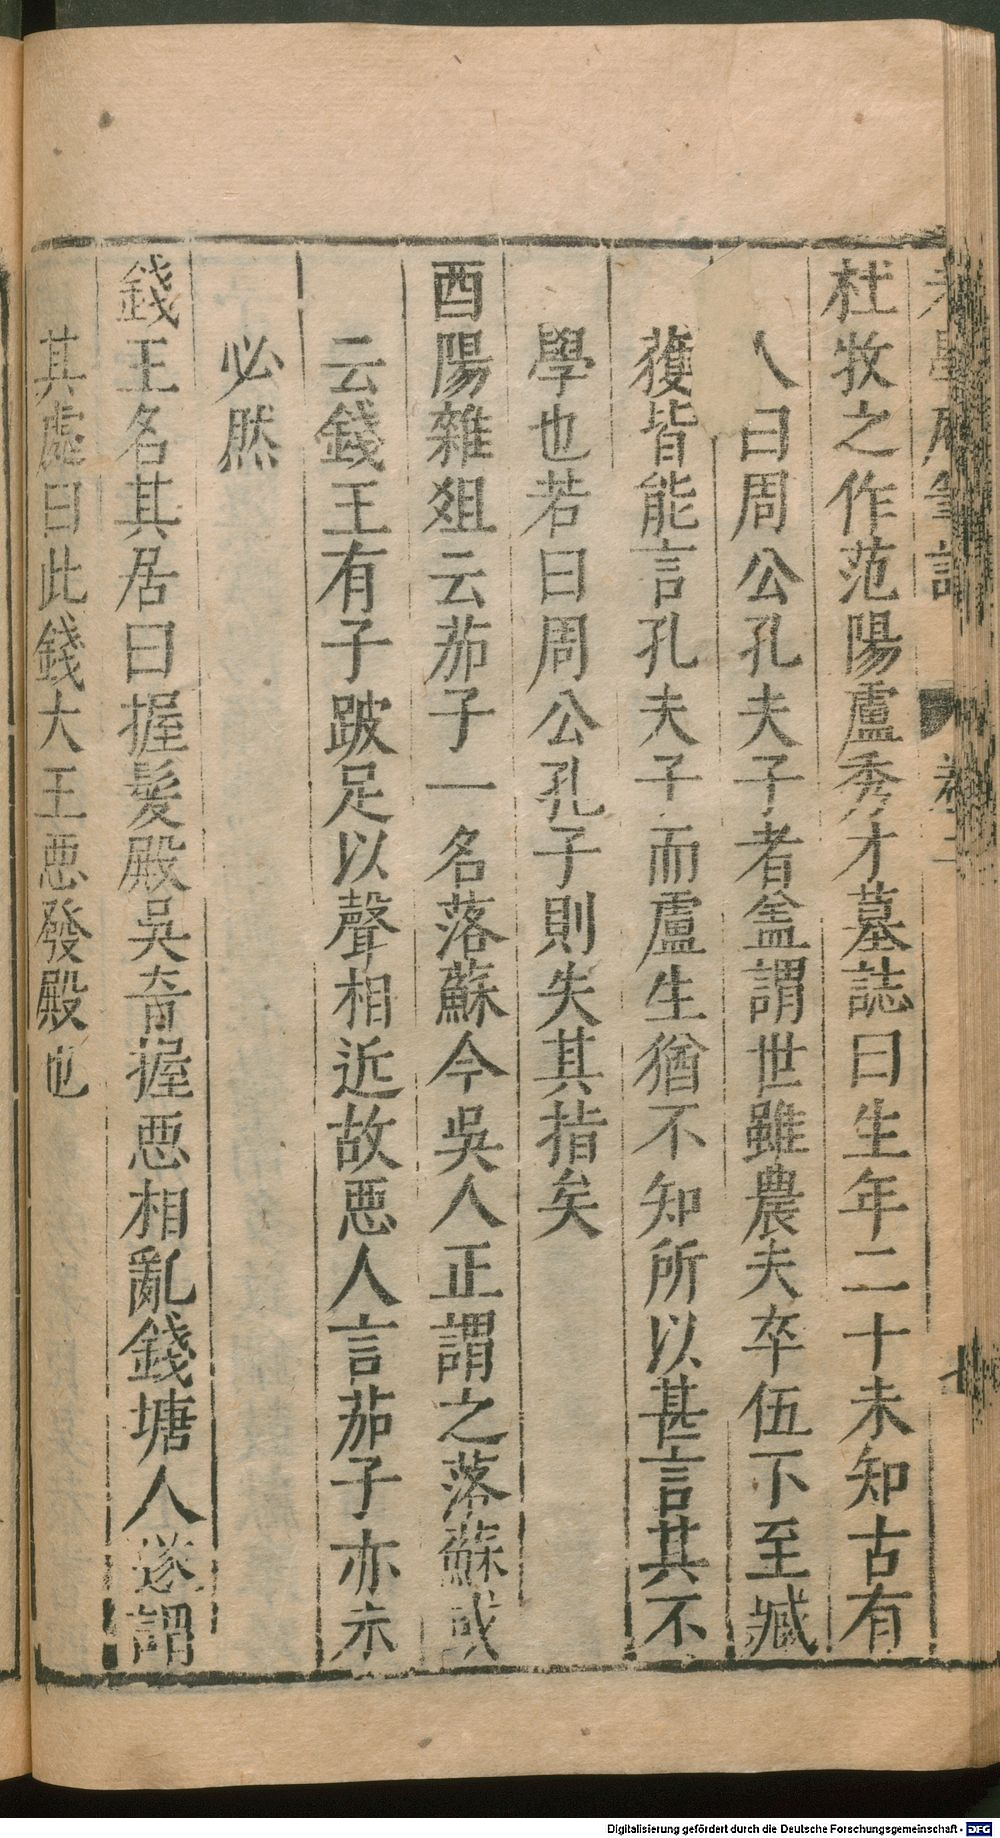 老學庵筆記 卷二
杜牧之作范陽盧秀才墓誌曰生年二十未知古有
人曰周公孔夫子者盖謂世雖農夫卒伍下至臧
獲皆能言孔夫子而盧生猶不知所以甚言其不
學也若曰周公孔子則失其指矣
酉陽雜爼云茄子一名落蘇今吳人正謂之落蘇或
云錢王有子跛足以聲相近故惡人言茄子亦未
必然
錢王名其居曰握髮殿吳音握惡相亂錢塘人遂謂
其處曰此錢大王惡發殿也
Digitalisierung gefördert durch die Deutsche Forschungsgemeinschaft - DFG